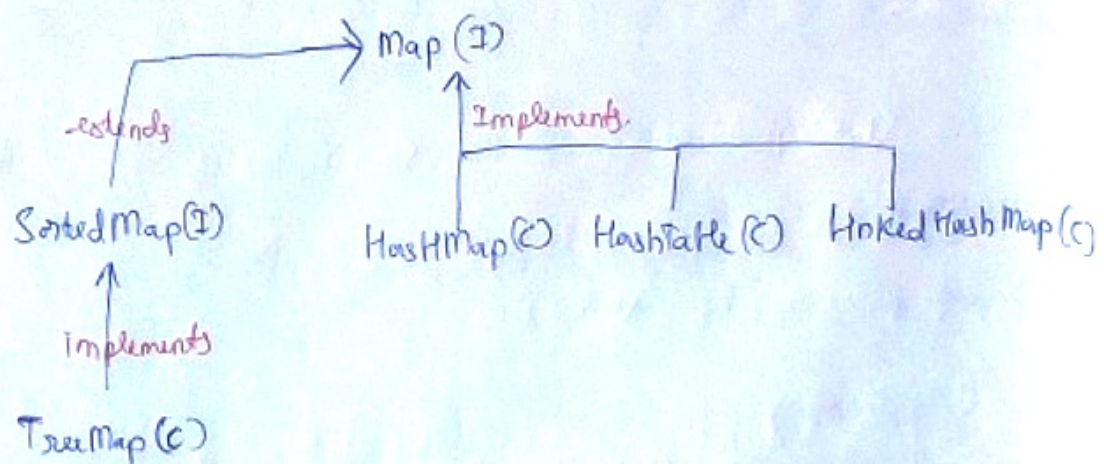 Map (I)
extends
Implements.
SortedMap(I)
HashMap(C) HashTable(C) LinkedHashMap(C)
implements
TreeMap(C)